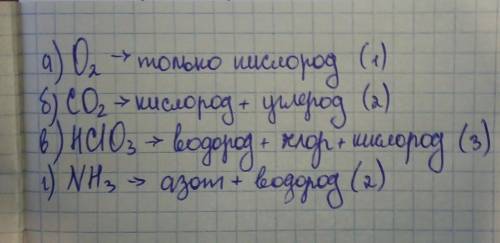 а) O₂ → только кислород (1)
б) CO₂ → кислород + углерод (2)
в) HClO₃ → водород + хлор + кислород (3)
г) NH₃ → азот + водород (2)